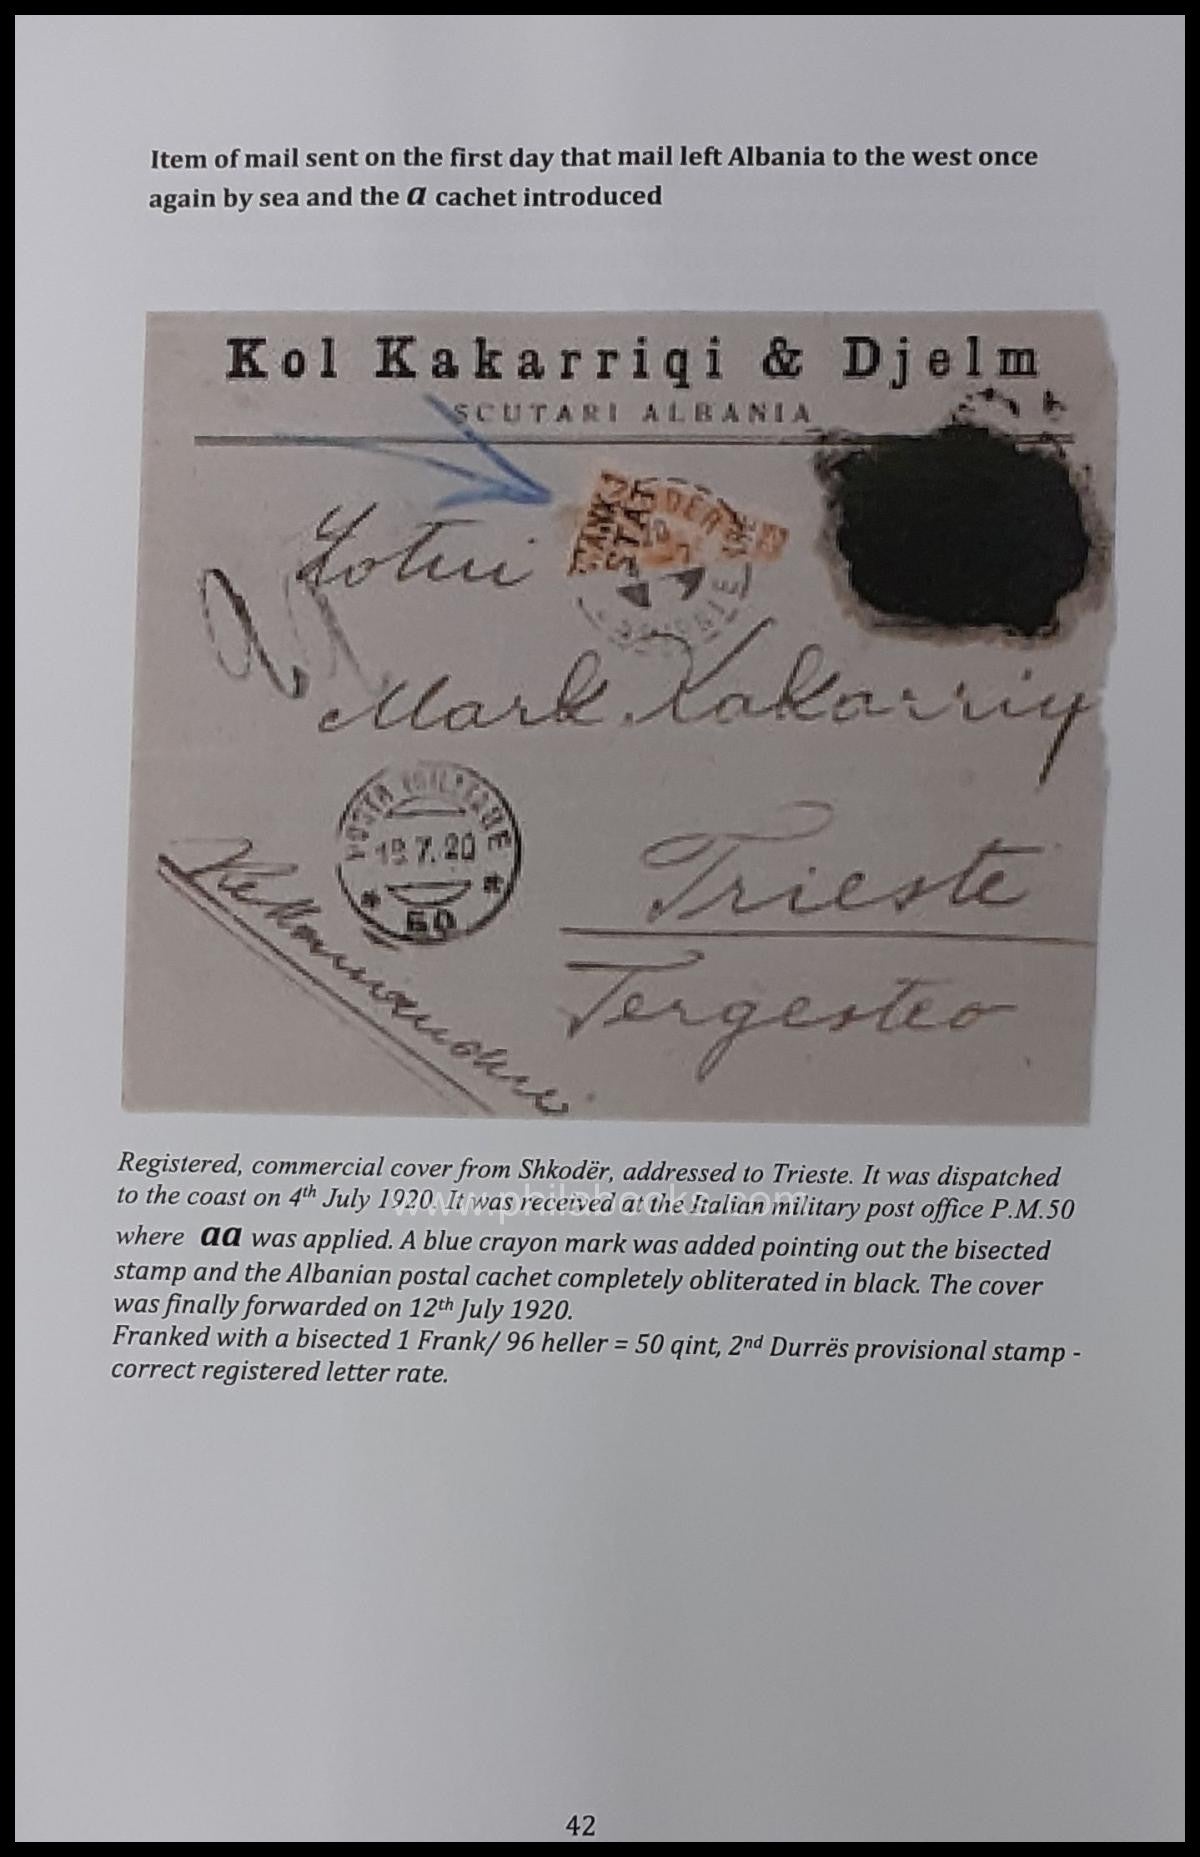 Item of mail sent on the first day that mail left Albania to the west once
again by sea and the a cachet introduced
Kol Kakarriqi & Djelm
SCUTARI ALBANIA
Mark Kakarriq
POSTA MILITARE
12.7.20
50
Trieste
Tergesteo
Registered, commercial cover from Shkodër, addressed to Trieste. It was dispatched
to the coast on 4th July 1920. It was received at the Italian military post office P.M.50
www.philabooks.com
where aa was applied. A blue crayon mark was added pointing out the bisected
stamp and the Albanian postal cachet completely obliterated in black. The cover
was finally forwarded on 12th July 1920.
Franked with a bisected 1 Frank/ 96 heller = 50 qint, 2nd Durrës provisional stamp -
correct registered letter rate.
42